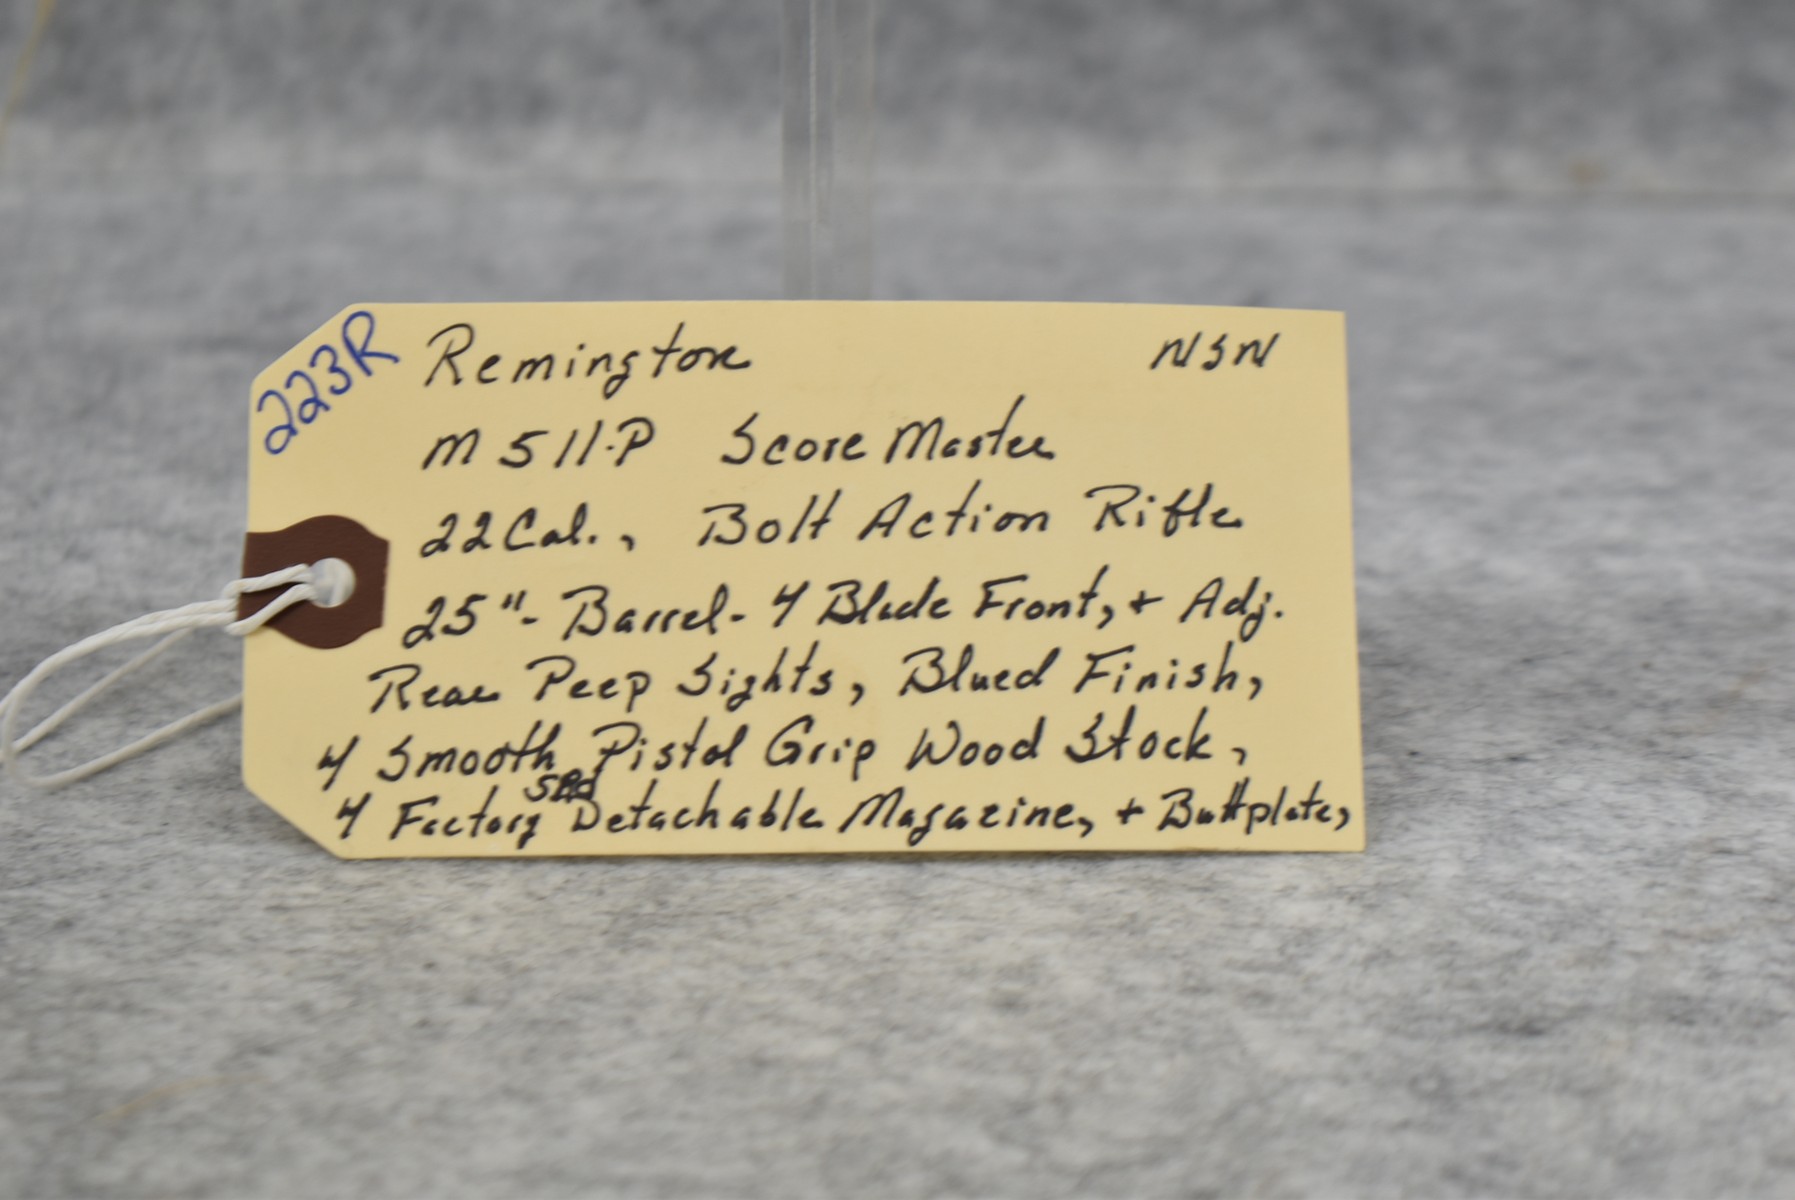 223R
Remington NSN
M 511-P Score Master
22 Cal., Bolt Action Rifle
25"- Barrel- 4 Blade Front, + Adj.
Rear Peep Sights, Blued Finish,
4 Smooth Pistol Grip Wood Stock,
4 Factory 5Rd Detachable Magazine, + Buttplate,